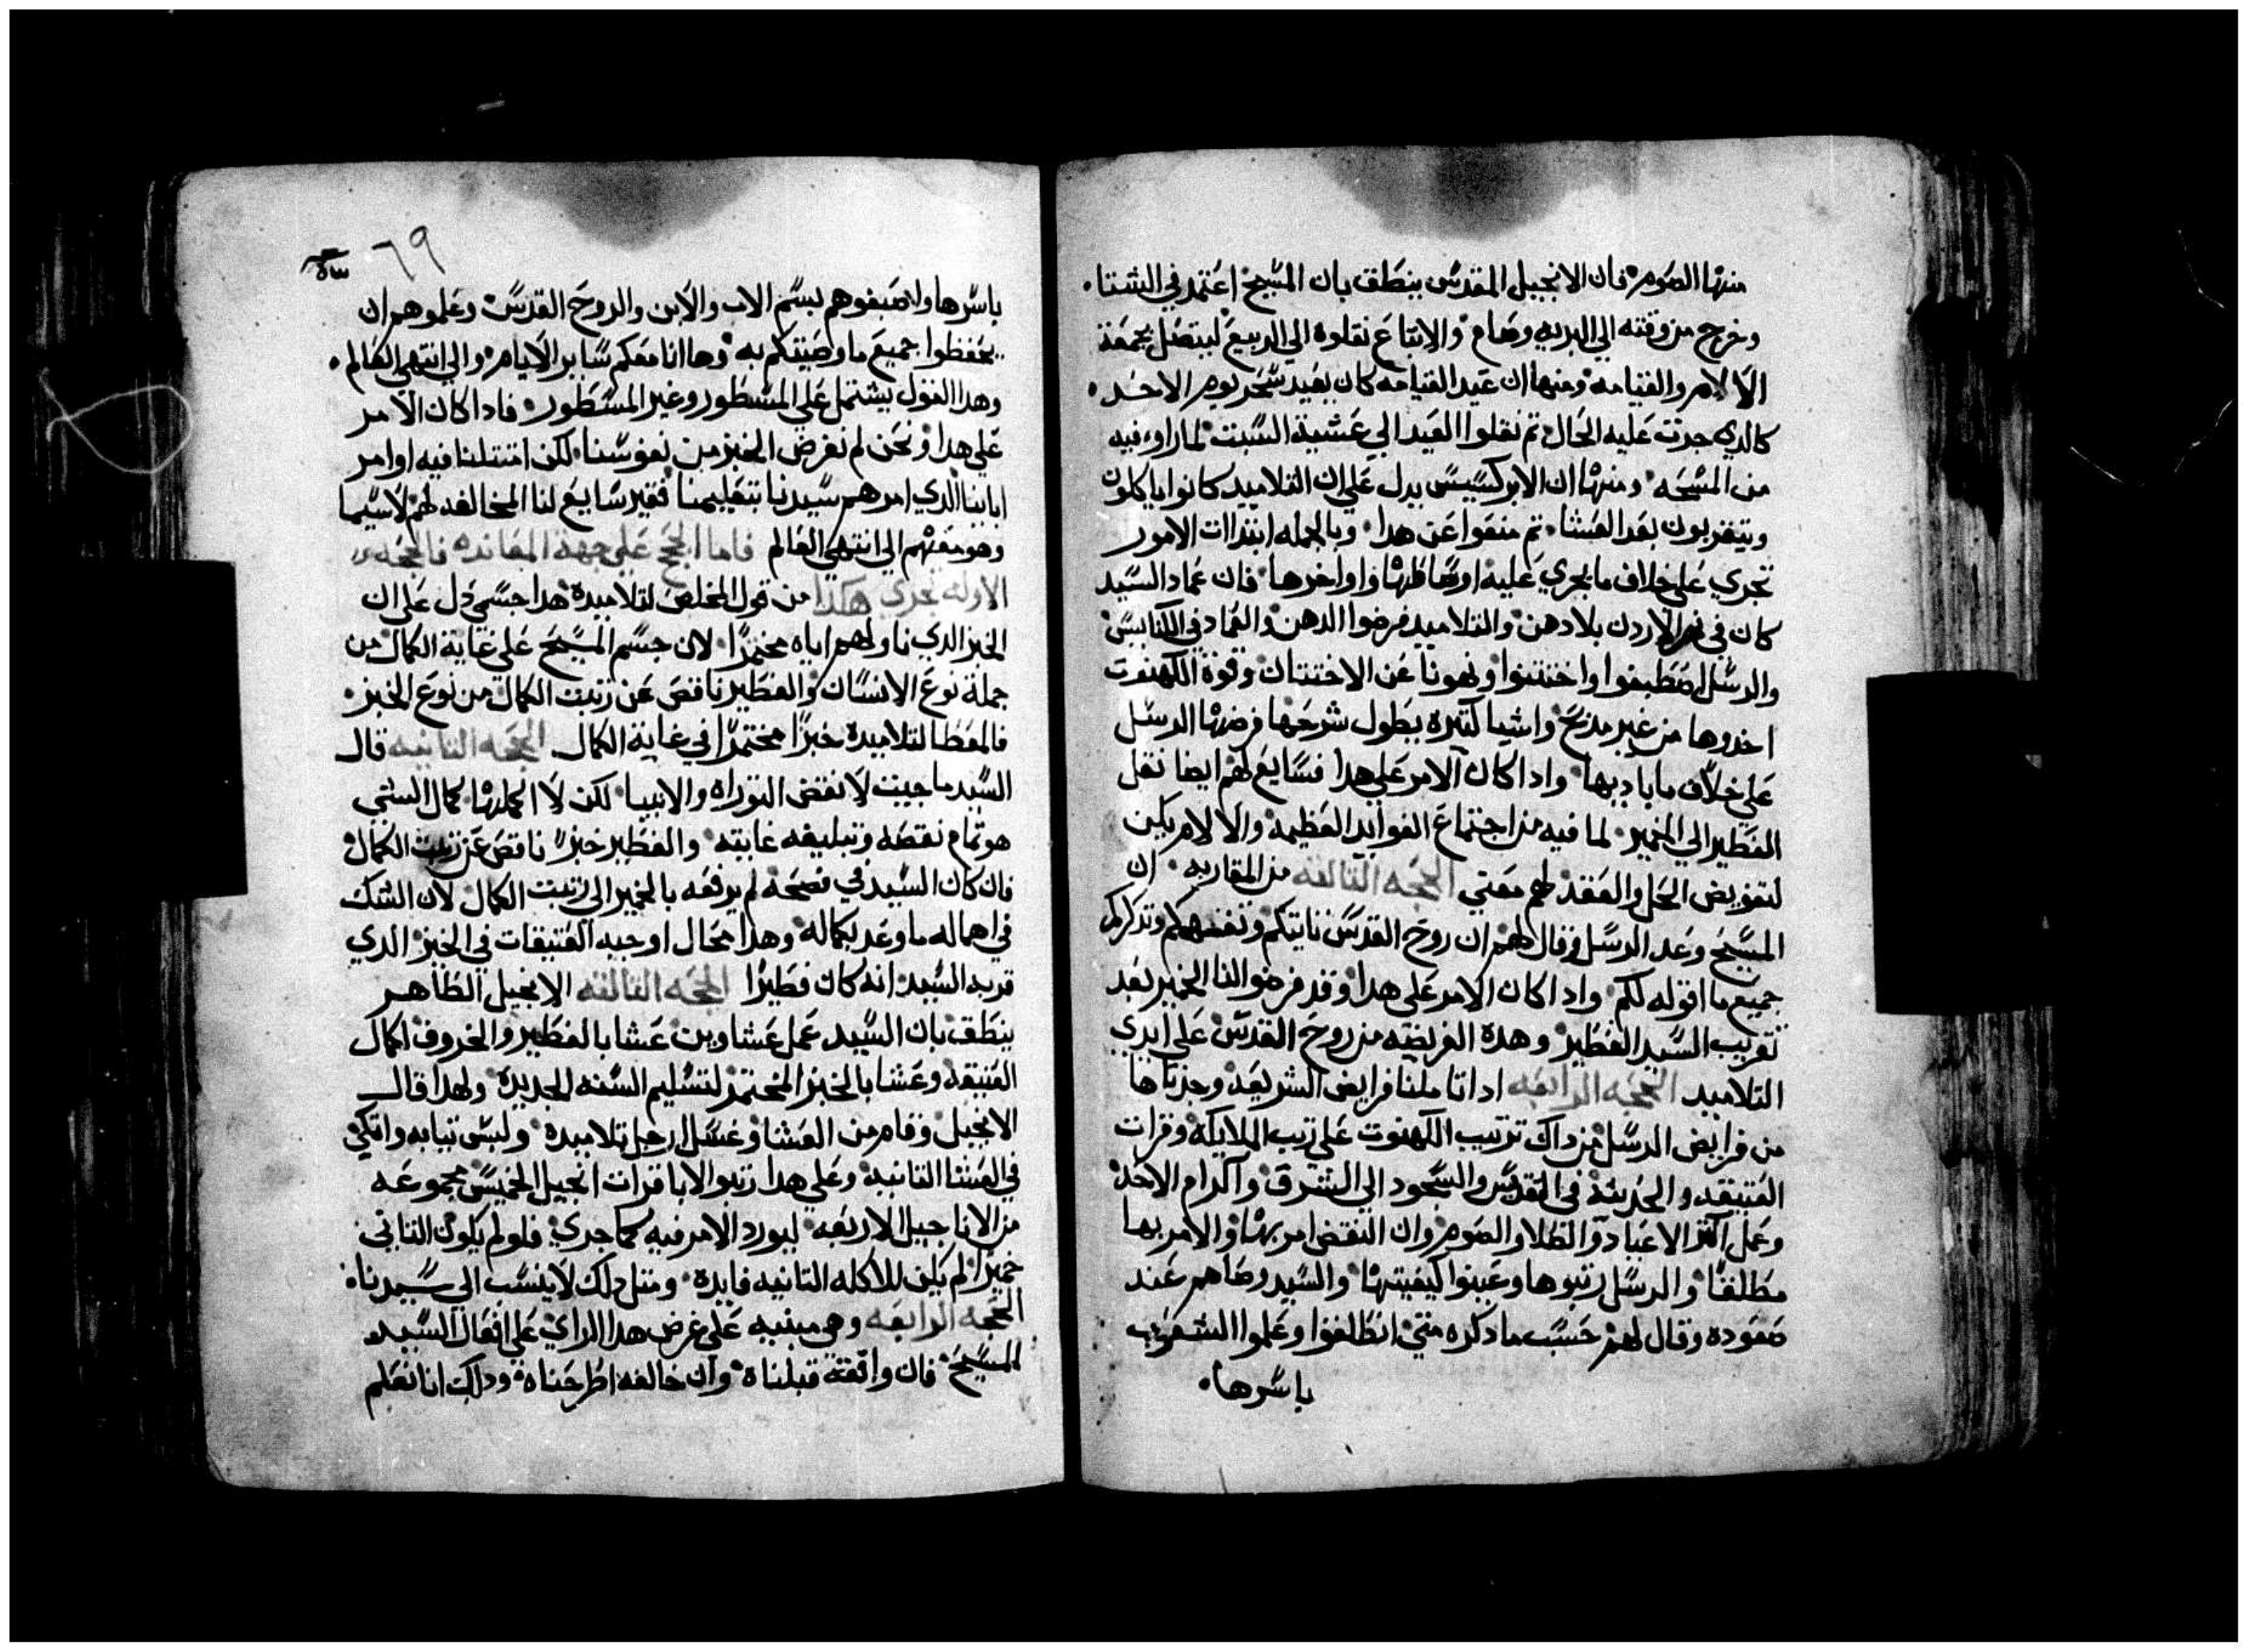 منها الصوم فان الانجيل المقدس ينطق بان المسيح اعتمد في الشتا.
وخرج من وقته الي البريه وصام والاتباع نقلوه الي الربيع ليتصل بجمعة
الالام والقيامه ومنها ان عيد القيامه كان بعيد سحر يوم الاحد.
كالدي جرت عليه الحال تم نقلوا العيد الي عشية السبت لما راوه فيه
من المسحه ومنها ان الابركسيس يدل علي ان التلاميد كانوا ياكلون
ويتقربون بعد العشا. تم منعوا عن هدا وبالجمله ابتدات الامور
تجري علي خلاف ما يجري عليه اوساطها واواخرها فان عماد السيد
كان في نهر الاردن بلا دهن والتلاميد فرضوا الدهن والعماد في الكنايس
والرسل اصطبغوا واختتنوا ونهونا عن الاختتان وقوة الكهنوت
اخدوها من غير مدبح واشيا كتيره يطول شرحها فرضها الرسل
علي خلاف ما باديها وادا كان الامر علي هدا فسايغ لهم ايضا نقل
الفطير الي الخمير لما فيه من اجتماع الفوايد العظيمه والا لام يكن
لتفويض الحل والعقد لهم معني الحجه التالته من المقاربه. ان
المسيح وعد الرسل وقال لهم ان روح القدس تاتيكم وتفقهكم وتدكركم
جميع ما اقوله لكم وادا كان الامر علي هدا وقد فرضوا لنا الخمير بعد
تقريب السيد الفطير وهده الفريضه من روح القدس علي ايدي
التلاميد الحجه الرابعه ادا تاملنا فرايض الشريعة وجدناها
من فرايض الرسل من داك ترتيب الكهنوت علي رتب الملايكه وقرات
العتيقه والحديثة في القداس والسجود الي الشرق واكرام الاحد
وعمل اكتر الاعياد والصلاه والصوم وان النقض امر بها والامر بها
مطلقا والرسل رتبوها وعينوا كيفيتها والسيد وصاهم عند
صعوده وقال لهم حسب ما دكره متي انطلقوا وعلموا الشعوب
باسرها.
٦٩
باسرها واصبغوهم بسم الاب والابن والروح القدس وعلموهم ان
يحفظوا جميع ما وصيتكم به وها انا معكم ساير الايام والي انتهي العالم.
وهدا القول يشتمل علي المسطور وغير المسطور فادا كان الامر
علي هدا ونحن لم نفرض الخبز من نفوسنا لكن امتتلنا فيه اوامر
ابابنا الدي امرهم سيدنا بتعليمنا فغير سايغ لنا المخالفه لهم لا سيما
وهو معهم الي انتهي العالم فاما الحجج علي جهة المعانده فالحجه
الاوله تجري هكدا من قول المخلص لتلاميده هدا جسمي دل علي ان
الخبز الدي ناولهم اياه مختمرا لان جسم المسيح علي غاية الكمال من
جملة نوع الانسان والفطير ناقص عن رتبت الكمال من نوع الخبز.
فالمعطا لتلاميده خبزا مختمرا في غاية الكمال الحجه التانيه قال
السيد ما جيت لانقض التوراه والانبيا لكن لاكملها كمال الشي
هو تمام نقصه وتبليغه غايته والفطير خبز ناقص عن رتبت الكمال
فان كان السيد في فصحه لم يرفعه بالخمير الي رتبت الكمال لان الشك
في اهماله ما وعد بكماله وهدا محال اوجبه العتيقات في الخبز الدي
قربه السيد انه كان فطيرا الحجه التالته الانجيل الطاهر
ينطق بان السيد عمل عشاوين عشا بالفطير والخروف لكمال
العتيقه وعشا بالخبز المختمر لتسليم السنه الجديدة ولهدا قال
الانجيل وقام من العشا وغسل ارجل تلاميده ولبس تيابه واتكي
في العشا التانيه وعلي هدا رتبوا الابا قرات انجيل الخميس مجموعه
من الاناجيل الاربعه ليورد الامر فيه كما جري فلو لم يكون التاني
خميرا لم يكن للاكله التانيه فايده ومتل دلك لا ينسب الي سيدنا.
الحجه الرابعه وهي مبنيه علي عرض هدا الراي علي افعال السيد
المسيح فان وافقته قبلناه وان خالفه اطرحناه ودلك انا نعلم